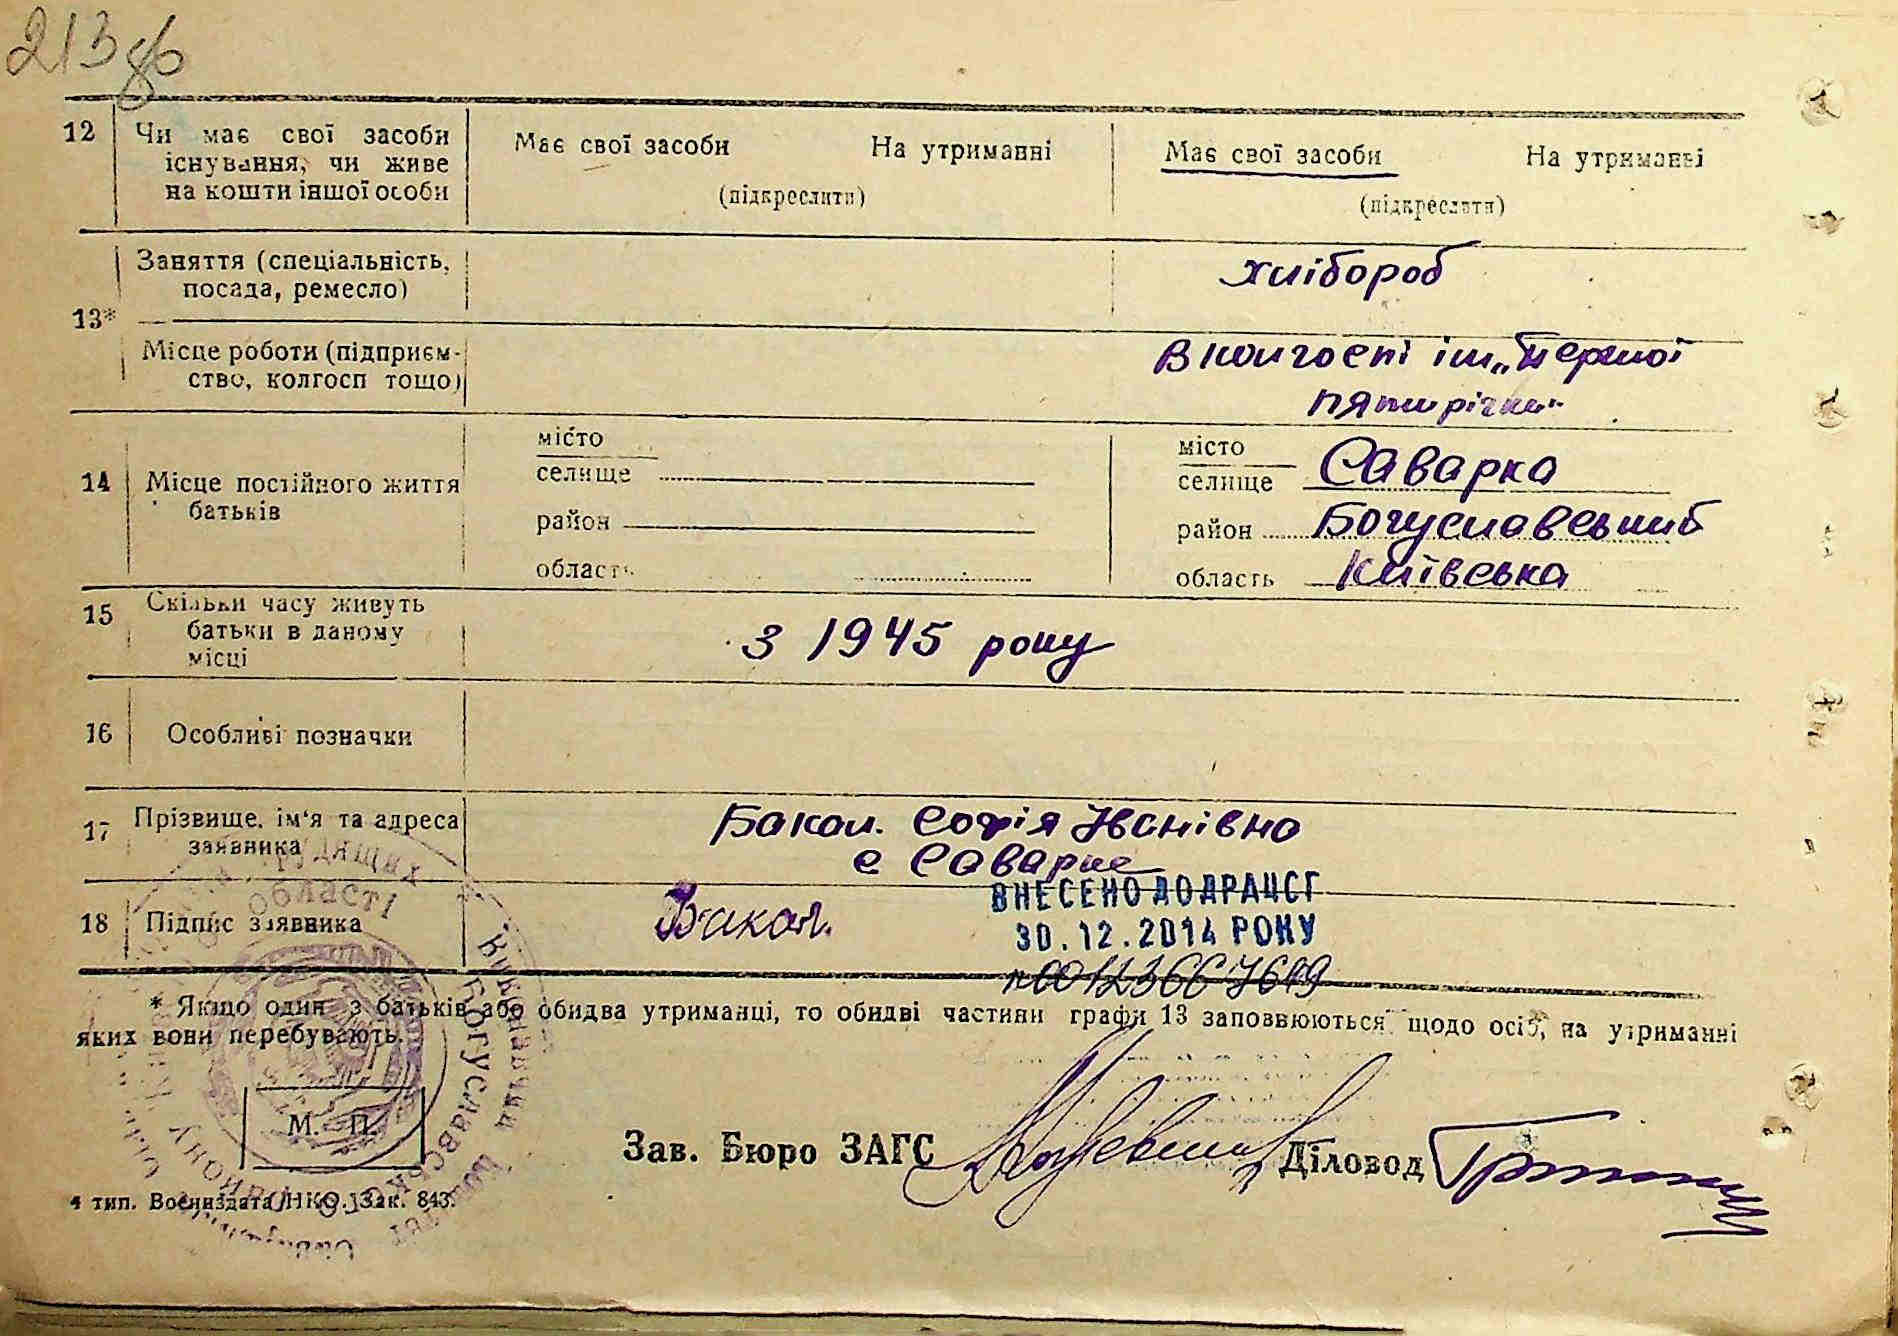 213 зв
12 Чи має свої засоби існування, чи живе на кошти іншої особи
Має свої засоби На утриманні
(підкреслити)
Має свої засоби На утриманні
(підкреслити)
13*
Заняття (спеціальність, посада, ремесло)
хлібороб
Місце роботи (підприємство, колгосп тощо)
в колгоспі ім „Першої
пятирічки"
14 Місце постійного життя батьків
місто
селище
район
область
місто
селище Саварка
район Богуславський
область Київська
15 Скільки часу живуть батьки в даному місці
з 1945 року
16 Особливі позначки
17 Прізвище, ім'я та адреса заявника
Бакал. Софія Іванівна
с Саварка
18 Підпис заявника
Бакал.
ВНЕСЕНО ДО ДРАЦСГ
30.12.2014 РОКУ
* Якщо один з батьків або обидва утриманці, то обидві частини графи 13 заповнюються щодо осіб, на утриманні
яких вони перебувають.
М. П.
Зав. Бюро ЗАГС
Діловод
4 тип. Воениздата НКО. Зак. 843.